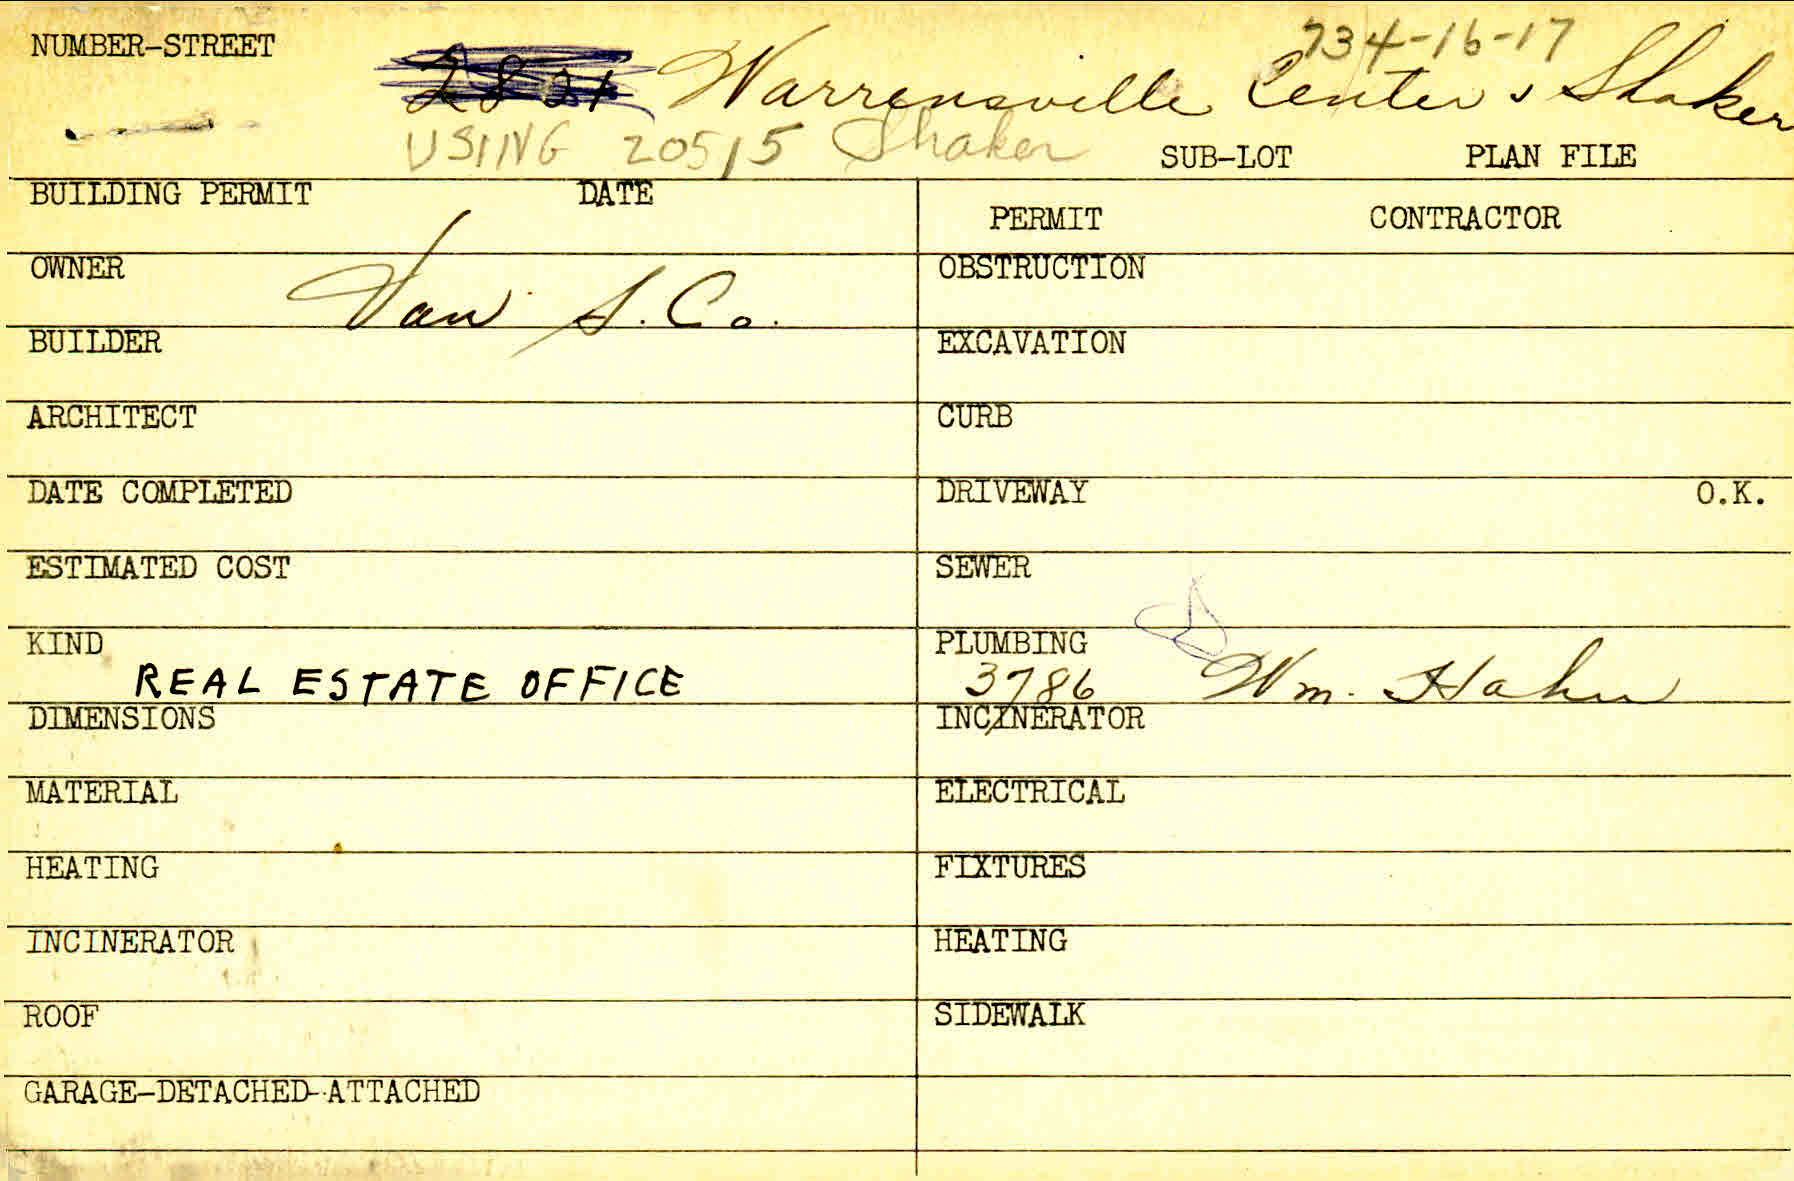 NUMBER-STREET 734-16-17
Warrensville Center & Shaker
USING 20515 Shaker SUB-LOT PLAN FILE
BUILDING PERMIT DATE
PERMIT CONTRACTOR
OWNER Van S. Co. OBSTRUCTION
BUILDER EXCAVATION
ARCHITECT CURB
DATE COMPLETED DRIVEWAY O.K.
ESTIMATED COST SEWER
KIND PLUMBING
REAL ESTATE OFFICE 3786 Wm. Hahn
DIMENSIONS INCINERATOR
MATERIAL ELECTRICAL
HEATING FIXTURES
INCINERATOR HEATING
ROOF SIDEWALK
GARAGE-DETACHED-ATTACHED